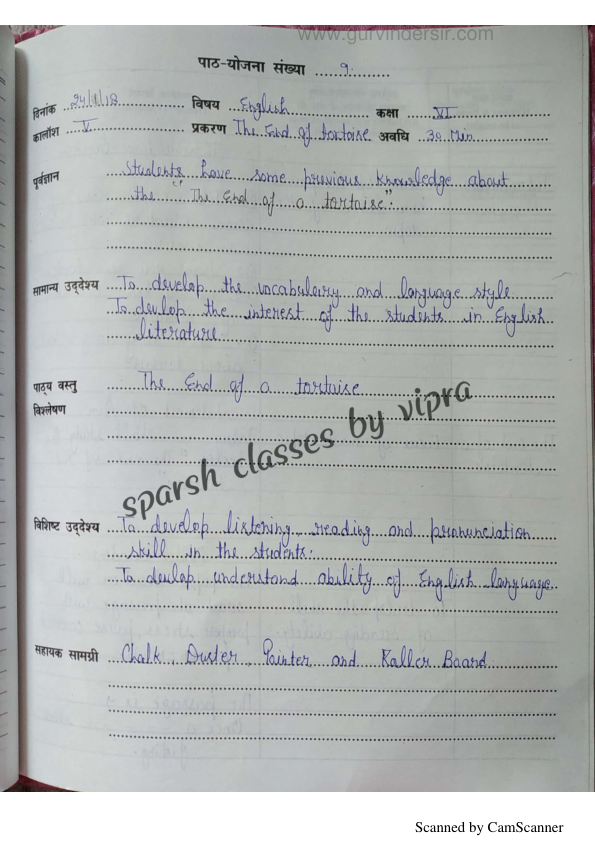 www.gurvindersir.com
पाठ-योजना संख्या ....9.........
दिनांक ..24/1/18.......... विषय ..English............ कक्षा ......VI............
कालांश ....V............ प्रकरण The End of tortoise. अवधि ..30 Min....
पूर्वज्ञान ....Students have some previous knowledge about
the "The End of a tortoise."
सामान्य उद्देश्य ..To develop the vocabulary and language style
To devlop the interest of the students in English
literature
पाठ्य वस्तु ....The End of a tortoise
विश्लेषण
sparsh classes by vipra
विशिष्ट उद्देश्य ..To develop listening, reading and pronunciation
skill in the students.
To devlop understand ability of English language
सहायक सामग्री ..Chalk, Duster, Painter and Kaller Board.
Scanned by CamScanner